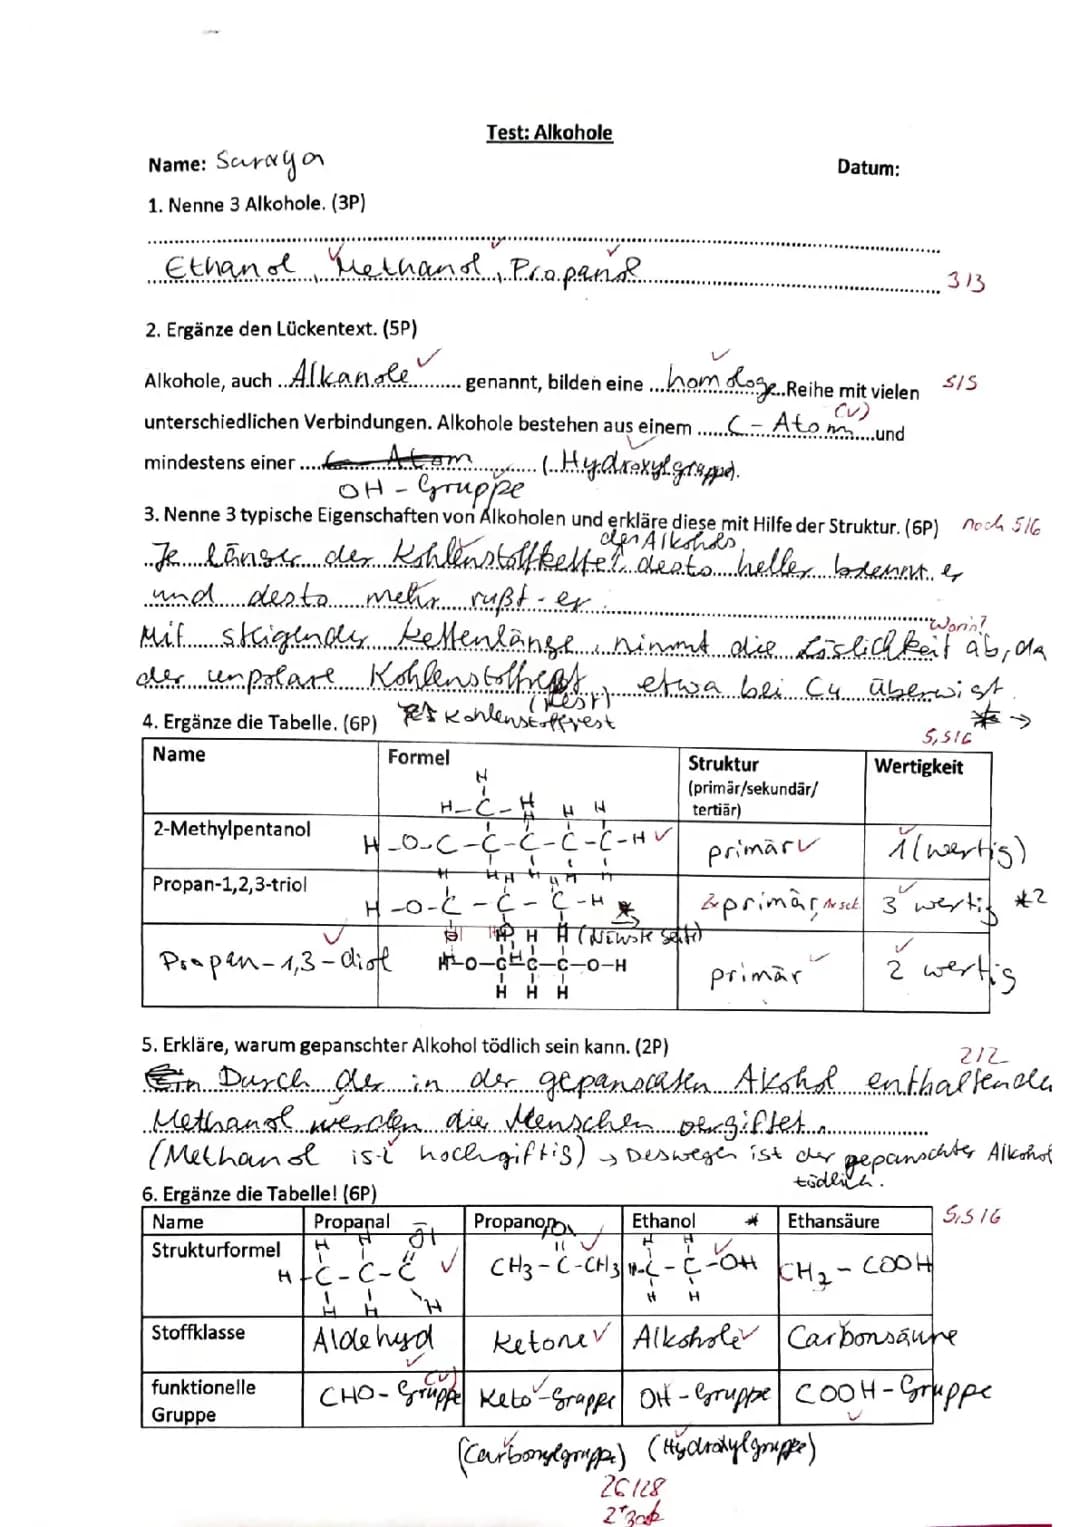 Test: Alkohole
Name: Saraya
Datum:
1. Nenne 3 Alkohole. (3P)
Ethanol, Methanol, Propanol
3/3
2. Ergänze den Lückentext. (5P)
Alkohole, auch Alkanole genannt, bilden eine homologe Reihe mit vielen
5/5
unterschiedlichen Verbindungen. Alkohole bestehen aus einem C-Atom und
mindestens einer OH-Gruppe (Hydroxylgruppe).
3. Nenne 3 typische Eigenschaften von Alkoholen und erkläre diese mit Hilfe der Struktur. (6P)
noch 5/6
des Alkohols
Je länger der Kohlenstoffkette, desto heller brennt er
und desto mehr rußt er.
Worin?
Mit steigender Kettenlänge, nimmt die Löslichkeit ab, da
der unpolare Kohlenstoffrest, etwa bei C4 überwiegt.
(Rest)
Kohlenstoffrest
4. Ergänze die Tabelle. (6P)
5,5/6
Name Formel Struktur (primär/sekundär/tertiär) Wertigkeit
2-Methylpentanol H-O-C-C-C-C-C-H primär 1(wertig)
Propan-1,2,3-triol H-O-C-C-C-H (Neuste Seite) 2x primär, 1x sek 3 wertig *2
Propan-1,3-diol H-O-C-C-C-O-H primär 2 wertig
5. Erkläre, warum gepanschter Alkohol tödlich sein kann. (2P)
2/2
Durch der in der gepanschten Akohol enthaltende
Methanol werden die Menschen vergiftet.
(Methanol ist hochgiftig) → Deswegen ist der gepanschter Alkohol
tödlich.
6. Ergänze die Tabelle! (6P)
5,5/6
Name Propanal Propanon Ethanol * Ethansäure
Strukturformel H-C-C-C CH3-C-CH3 H-C-C-OH CH2-COOH
Stoffklasse Aldehyd Ketone Alkohole Carbonsäure
funktionelle Gruppe CHO-Gruppe Keto-Gruppe OH-Gruppe COOH-Gruppe
(Carbonylgruppe) (Hydroxylgruppe)
26/28